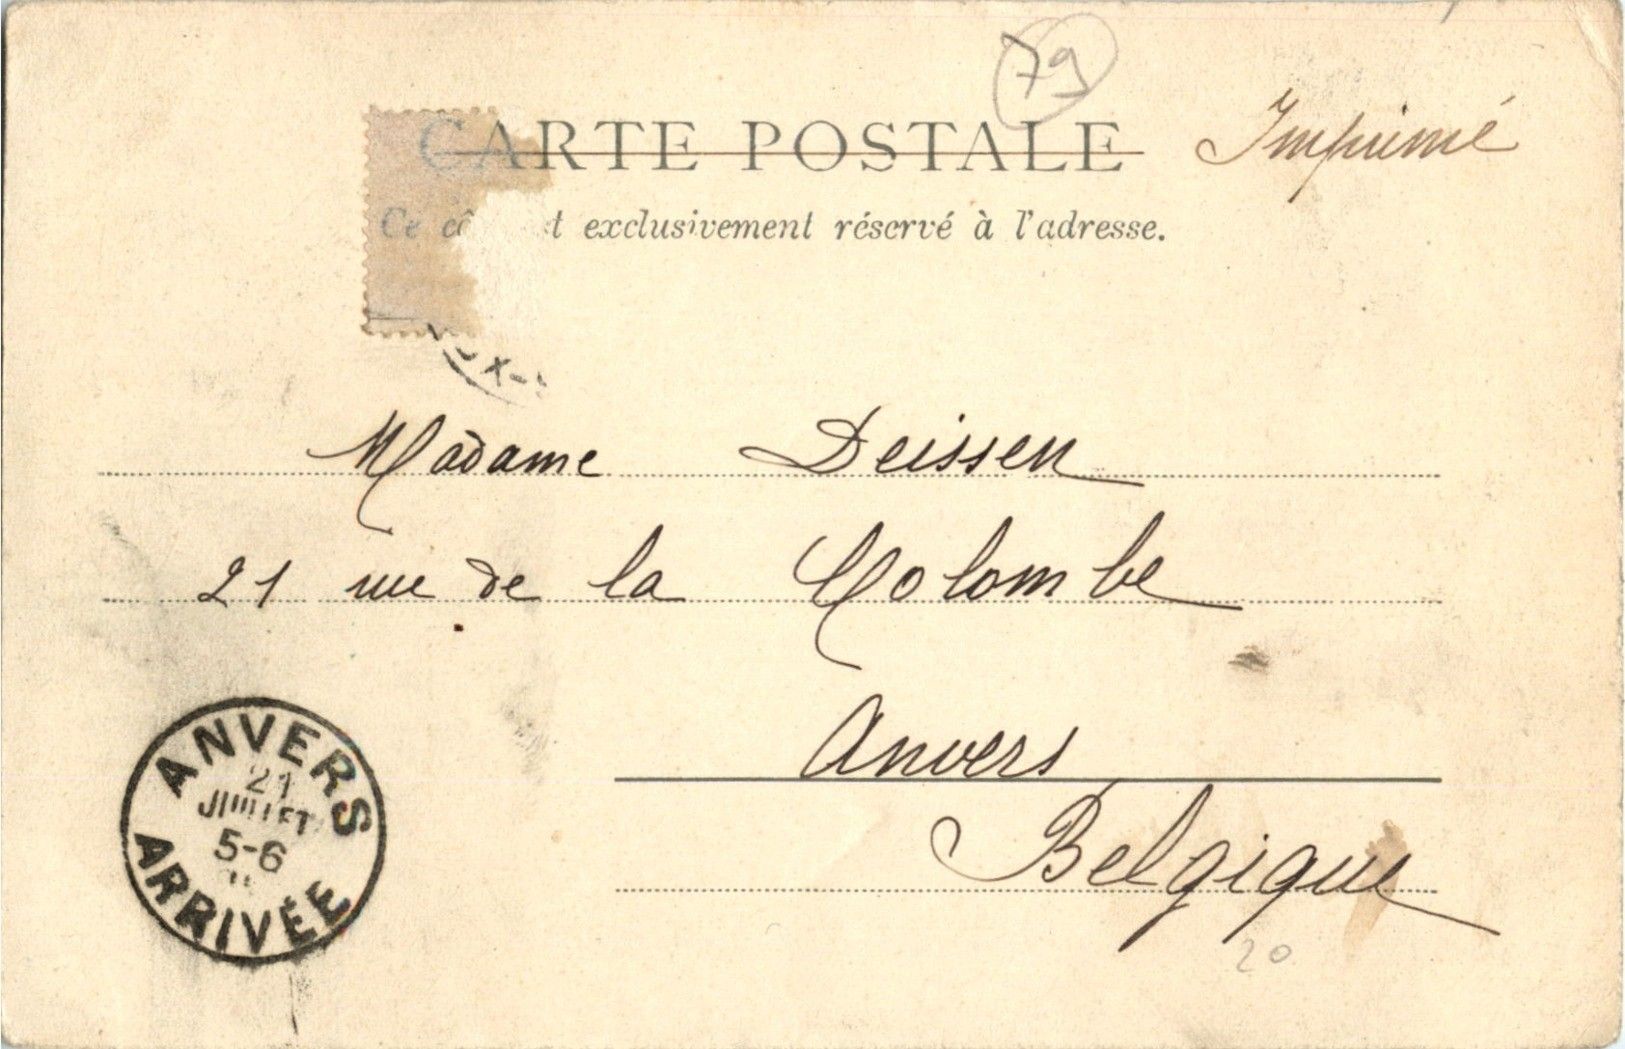 79
CARTE POSTALE Imprimé
Ce cô t exclusivement réservé à l'adresse.
Madame Deissen
21 rue de la Colombe
Anvers
Belgique
20
ANVERS
21
JUILLET
5-6
ARRIVÉE